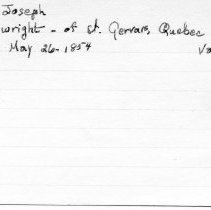 Joseph
wright - of St. Gervais, Quebec
May 26 - 1854